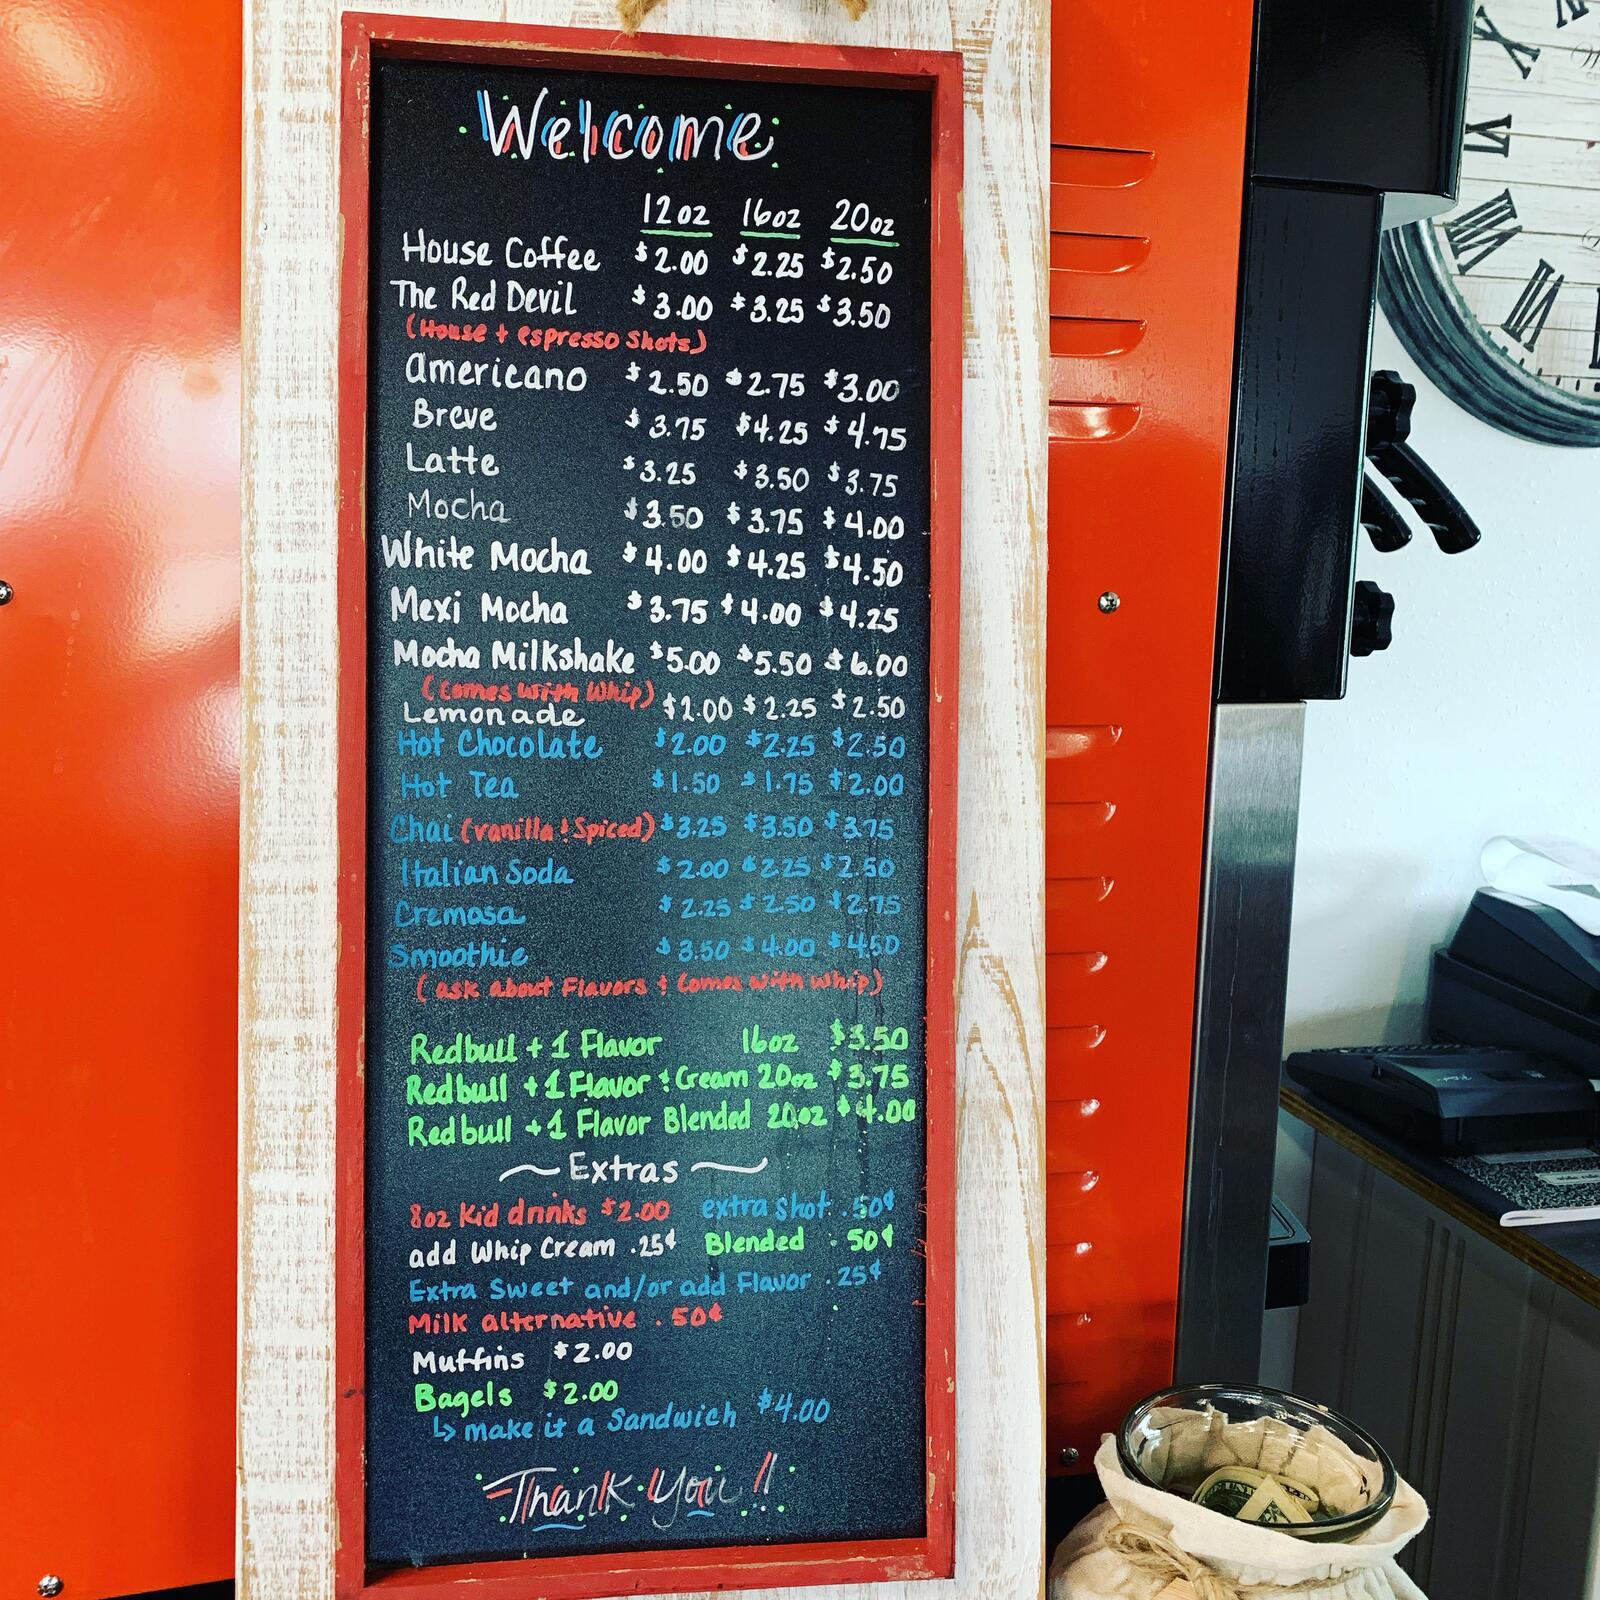 Welcome
12oz 16oz 20oz
House Coffee $2.00 $2.25 $2.50
The Red Devil $3.00 $3.25 $3.50
(House + espresso shots)
Americano $2.50 $2.75 $3.00
Breve $3.75 $4.25 $4.75
Latte $3.25 $3.50 $3.75
Mocha $3.50 $3.75 $4.00
White Mocha $4.00 $4.25 $4.50
Mexi Mocha $3.75 $4.00 $4.25
Mocha Milkshake $5.00 $5.50 $6.00
(Comes with Whip)
Lemonade $2.00 $2.25 $2.50
Hot Chocolate $2.00 $2.25 $2.50
Hot Tea $1.50 $1.75 $2.00
Chai (vanilla & Spiced) $3.25 $3.50 $3.75
Italian Soda $2.00 $2.25 $2.50
Cremosa $2.25 $2.50 $2.75
Smoothie $3.50 $4.00 $4.50
(ask about Flavors & Comes with whip)
Redbull + 1 Flavor 16oz $3.50
Redbull + 1 Flavor & Cream 20oz $3.75
Redbull + 1 Flavor Blended 20oz $4.00
~ Extras ~
8oz Kid drinks $2.00 extra shot .50¢
add Whip Cream .25¢ Blended .50¢
Extra Sweet and/or add Flavor .25¢
Milk alternative .50¢
Muffins $2.00
Bagels $2.00
↳ make it a Sandwich $4.00
Thank You!!